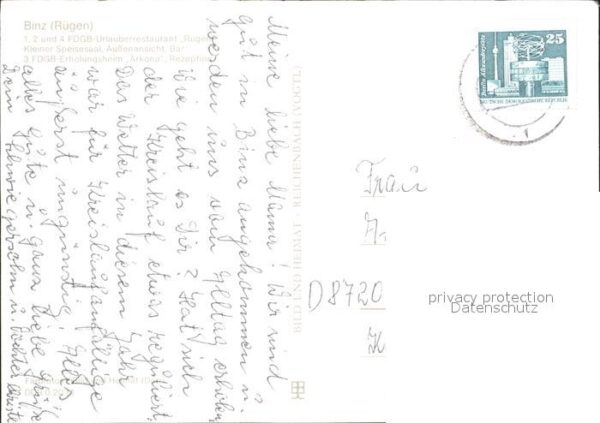 Binz (Rügen)
1, 2 und 4 FDGB-Urlauberrestaurant „Rügen“
Kleiner Speisesaal, Außenansicht, Bar
3 FDGB-Erholungsheim „Arkona“, Rezeption
Meine liebe Mama! Wir sind
gut in Binz angekommen u.
werden uns vom Alltag erholen.
Wie geht es Dir? Hat sich
der Kreislauf etwas reguliert.
Das Wetter in diesem Jahr
war für Kreislaufanfällige
äußerst ungünstig! Alles
alles Gute u. ganz liebe Grüße
Dein Schwiegersohn u. Tochter
BILD UND HEIMAT
25
Berlin, Alexanderplatz
DEUTSCHE DEMOKRATISCHE REPUBLIK
Frau
D8720
privacy protection
Datenschutz